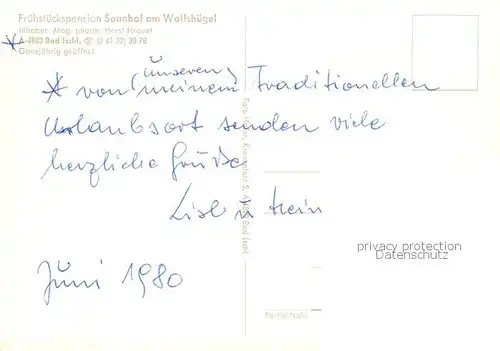 Frühstückspension Sonnhof am Wolfshügel
Inhaber: Mag. pharm. Horst
A-4820 Bad Ischl, ☎ (0 61 32) 20 78
Ganzjährig geöffnet
* von (unseren) meinem Traditionellen
Urlaubsort senden viele
herzliche Grüße
Lisl u Hein
Juni 1980
Bad Ischl
Postleitzahl
privacy protection
Datenschutz